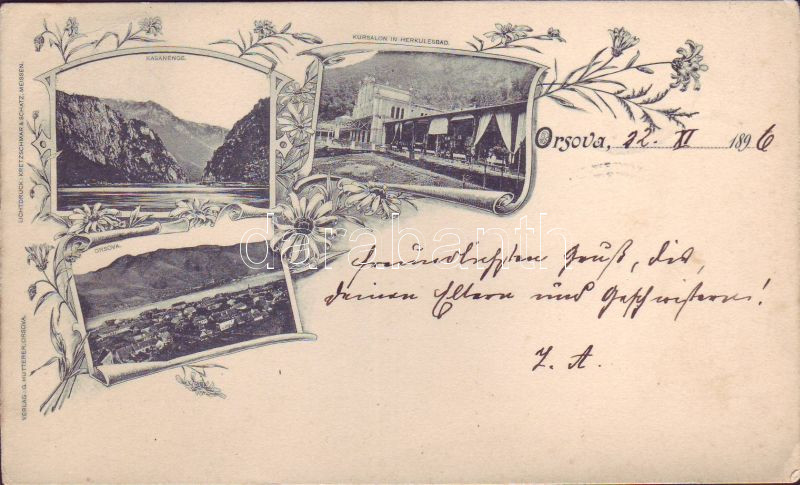 KASANENGE.
KURSALON IN HERKULESBAD.
LICHTDRUCK: KRETZSCHMAR & SCHATZ, MEISSEN.
Orsova, 22. XI 1896
ORSOVA.
darabanth
freundlichsten Gruß, dir,
deinen Eltern und Geschwistern!
Z. A.
VERLAG: G. HUTTERER, ORSOVA.